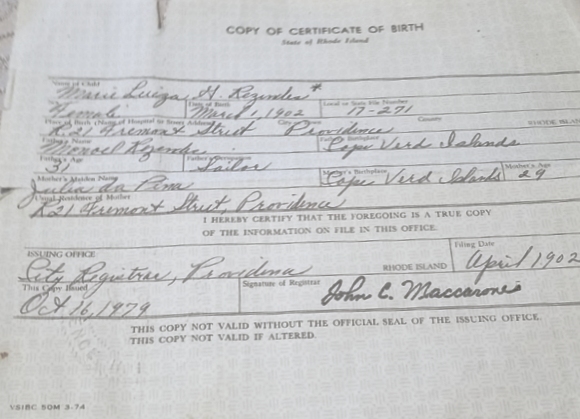 COPY OF CERTIFICATE OF BIRTH
State of Rhode Island
Name of Child
Marie Luiza G. Rezendes*
Date of Birth Local or State File Number
Female March 1, 1902 17-271
Place of Birth (Name of Hospital or Street Address) City or Town County
R. 21 Fremont Street Providence RHODE ISLAND
Father's Name Father's Birthplace
Manoel Rezendes Cape Verd Islands
Father's Age Father's Occupation
31 Sailor
Mother's Maiden Name Mother's Birthplace Mother's Age
Julia da Pina Cape Verd Islands 29
Usual Residence of Mother
R 21 Fremont Street, Providence
I HEREBY CERTIFY THAT THE FOREGOING IS A TRUE COPY
OF THE INFORMATION ON FILE IN THIS OFFICE.
ISSUING OFFICE Filing Date
City Registrar, Providence RHODE ISLAND April 1902
This Copy Issued Signature of Registrar
Oct 16, 1979 John C. Maccarone
THIS COPY NOT VALID WITHOUT THE OFFICIAL SEAL OF THE ISSUING OFFICE.
THIS COPY NOT VALID IF ALTERED.
VSIBC 50M 3-74